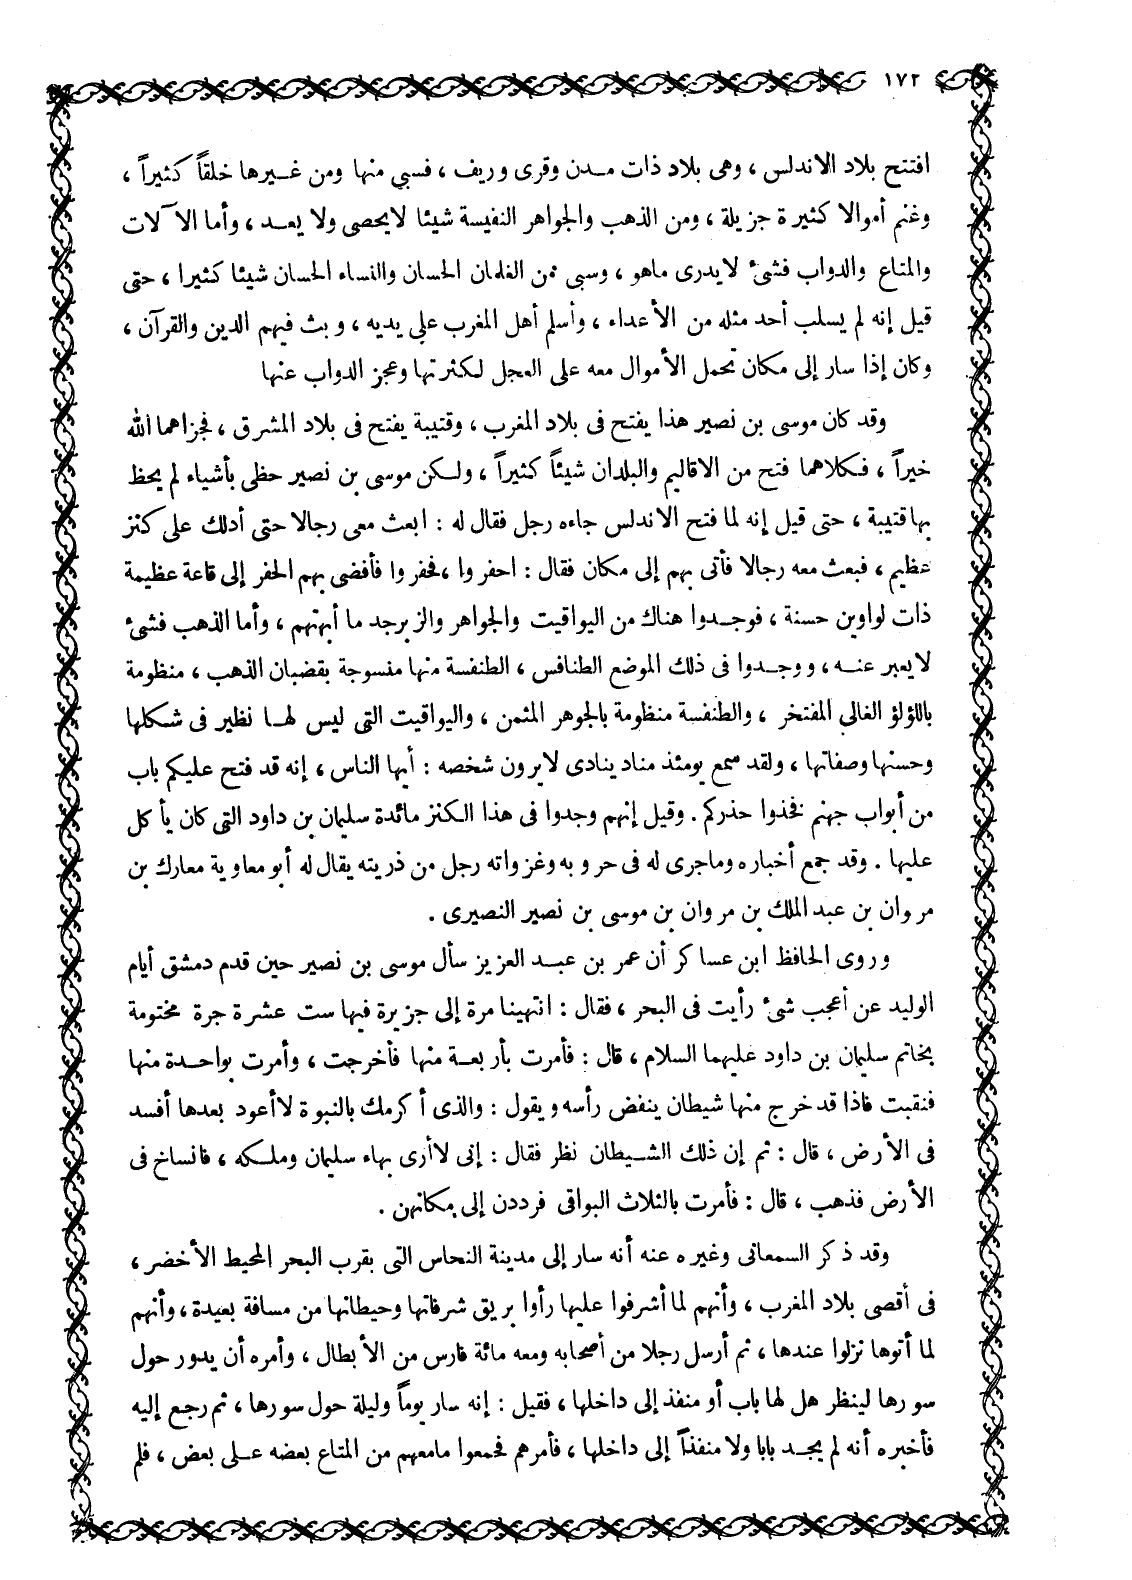 ١٧٢
افتتح بلاد الاندلس ، وهى بلاد ذات مدن وقرى وريف ، فسبي منها ومن غيرها خلقاً كثيراً ،
وغنم أموالا كثيرة جزيلة ، ومن الذهب والجواهر النفيسة شيئا لايحصى ولا يعد ، وأما الآلات
والمتاع والدواب فشىء لايدرى ماهو ، وسبى من الغلمان الحسان والنساء الحسان شيئا كثيرا ، حتى
قيل إنه لم يسلب أحد مثله من الأعداء ، وأسلم أهل المغرب على يديه ، وبث فيهم الدين والقرآن ،
وكان إذا سار إلى مكان تحمل الأموال معه على العجل لكثرتها وعجز الدواب عنها
وقد كان موسى بن نصير هذا يفتح فى بلاد المغرب ، وقتيبة يفتح فى بلاد المشرق ، فجزاهما الله
خيراً ، فكلاهما فتح من الاقاليم والبلدان شيئاً كثيراً ، ولكن موسى بن نصير حظى بأشياء لم يحظ
بها قتيبة ، حتى قيل إنه لما فتح الاندلس جاءه رجل فقال له : ابعث معى رجالا حتى أدلك على كنز
عظيم ، فبعث معه رجالا فأتى بهم إلى مكان فقال : احفروا ، فحفروا فأفضى بهم الحفر إلى قاعة عظيمة
ذات لواوين حسنة ، فوجدوا هناك من اليواقيت والجواهر والزبرجد ما أبهتهم ، وأما الذهب فشىء
لايعبر عنه ، ووجدوا فى ذلك الموضع الطنافس ، الطنفسة منها منسوجة بقضبان الذهب ، منظومة
باللؤلؤ الغالى المفتخر ، والطنفسة منظومة بالجوهر المثمن ، واليواقيت التى ليس لها نظير فى شكلها
وحسنها وصفاتها ، ولقد سمع يومئذ مناد ينادى لايرون شخصه : أيها الناس ، إنه قد فتح عليكم باب
من أبواب جهنم فخذوا حذركم . وقيل إنهم وجدوا فى هذا الكنز مائدة سليمان بن داود التى كان يأكل
عليها . وقد جمع أخباره وماجرى له فى حروبه وغزواته رجل من ذريته يقال له أبو معاوية معارك بن
مروان بن عبد الملك بن مروان بن موسى بن نصير النصيرى .
وروى الحافظ ابن عساكر أن عمر بن عبد العزيز سأل موسى بن نصير حين قدم دمشق أيام
الوليد عن أعجب شىء رأيت فى البحر ، فقال : انتهينا مرة إلى جزيرة فيها ست عشرة جرة مختومة
بخاتم سليمان بن داود عليهما السلام ، قال : فأمرت بأربعة منها فأخرجت ، وأمرت بواحدة منها
فنقبت فاذا قد خرج منها شيطان ينفض رأسه ويقول : والذى أكرمك بالنبوة لاأعود بعدها أفسد
فى الأرض ، قال : ثم إن ذلك الشيطان نظر فقال : إنى لاأرى بهاء سليمان وملكه ، فانساخ فى
الأرض فذهب ، قال : فأمرت بالثلاث البواقى فرددن إلى مكانهن .
وقد ذكر السمعانى وغيره عنه أنه سار إلى مدينة النحاس التى بقرب البحر المحيط الأخضر ،
فى أقصى بلاد المغرب ، وأنهم لما أشرفوا عليها رأوا بريق شرفاتها وحيطانها من مسافة بعيدة ، وأنهم
لما أتوها نزلوا عندها ، ثم أرسل رجلا من أصحابه ومعه مائة فارس من الأبطال ، وأمره أن يدور حول
سورها لينظر هل لها باب أو منفذ إلى داخلها ، فقيل : إنه سار يوماً وليلة حول سورها ، ثم رجع إليه
فأخبره أنه لم يجد بابا ولا منفذاً إلى داخلها ، فأمرهم فجمعوا مامعهم من المتاع بعضه على بعض ، فلم